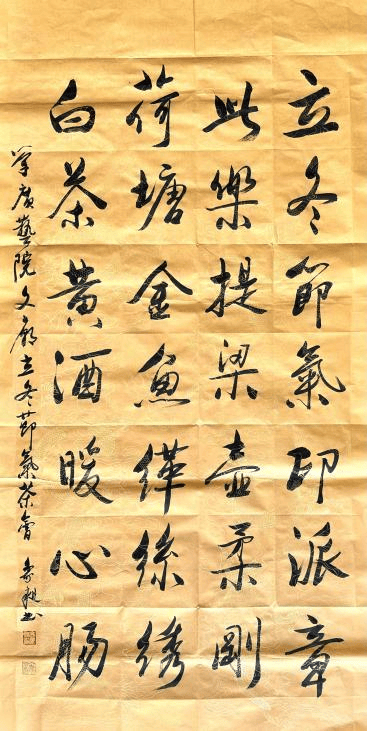 立冬節氣印派章
此樂提梁壺柔剛
荷塘金魚緙絲繡
白茶黃酒暖心腸
廣藝院文廟立冬節氣茶會